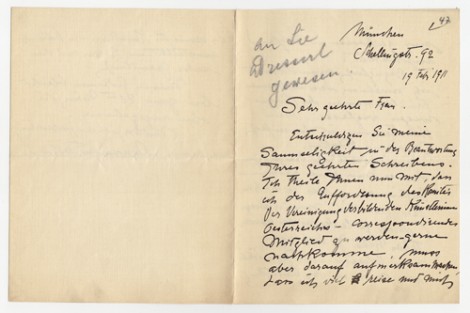 47
München
Schellingstr. 92
19 Feb 1911
an Sie
adressirt
gewesen.
Sehr geehrte Frau.
Entschuldigen Sie meine
Saumseligkeit in der Beantwortung
Ihres geehrten Schreibens.
Ich theile Ihnen nun mit, dass
ich der Aufforderung des Comites
der Vereinigung der bildenden Künstlerinnen
Oesterreichs – correspondirendes
Mitglied zu werden – gerne
nachkomme, muss
aber darauf aufmerksam machen,
dass ich viel reise und mich